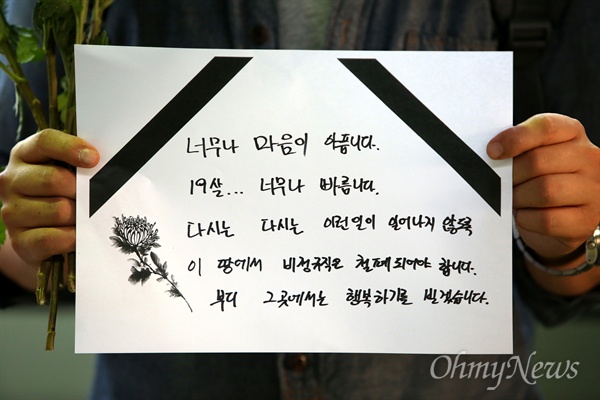 너무나 마음이 아픕니다.
19살... 너무나 빠릅니다.
다시는 다시는 이런일이 일어나지 않도록
이 땅에서 비정규직은 철폐되어야 합니다.
부디 그곳에서는 행복하기를 빌겠습니다.
OhmyNews